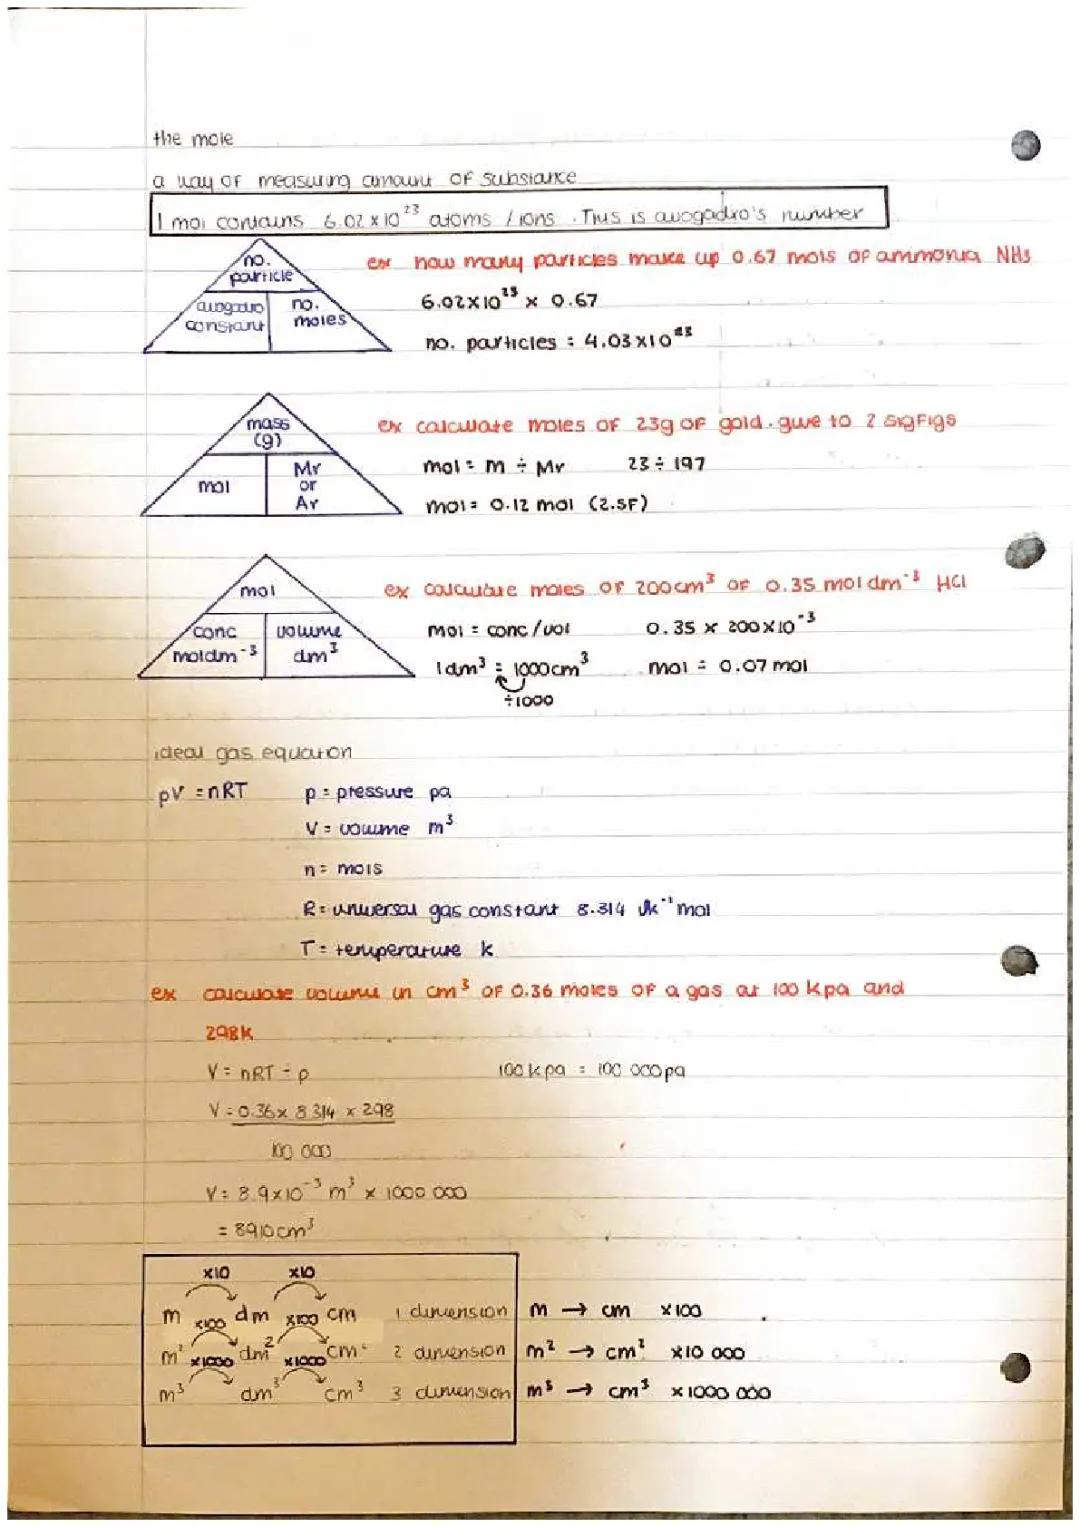 the mole
a way of measuring amount of substance
1 mol contains 6.02 x 10²³ atoms / ions . This is avogadro's number
no.
particle
avogadro
constant
no.
moles
ex how many particles make up 0.67 mols of ammonia NH3
6.02x10²³ x 0.67
no. particles = 4.03 x10²³
mass
(g)
mol
Mr
or
Ar
ex calculate moles of 23g of gold. give to 2 sigfigs
mol = m ÷ Mr 23 ÷ 197
mol = 0.12 mol (2.SF)
mol
conc
moldm⁻³
volume
dm³
ex calculate moles of 200cm³ of 0.35 mol dm⁻³ HCl
mol = conc / vol 0.35 x 200x10⁻³
1dm³ = 1000cm³ mol = 0.07 mol
÷1000
ideal gas equation
pV = nRT p = pressure pa
V = volume m³
n = mols
R = universal gas constant 8.314 Jk⁻¹ mol
T = temperature k
ex calculate volume in cm³ of 0.36 moles of a gas at 100 kpa and
298k
V = nRT ÷ p 100 kpa = 100 000pa
V = 0.36 x 8.314 x 298
100 000
V = 8.9x10⁻³ m³ x 1000 000
= 8910cm³
x10 x10
m dm cm 1 dimension m → cm x100
x100 x100
m² dm² cm² 2 dimension m² → cm² x10 000
x1000 x1000
m³ dm³ cm³ 3 dimension m³ → cm³ x 1000 000